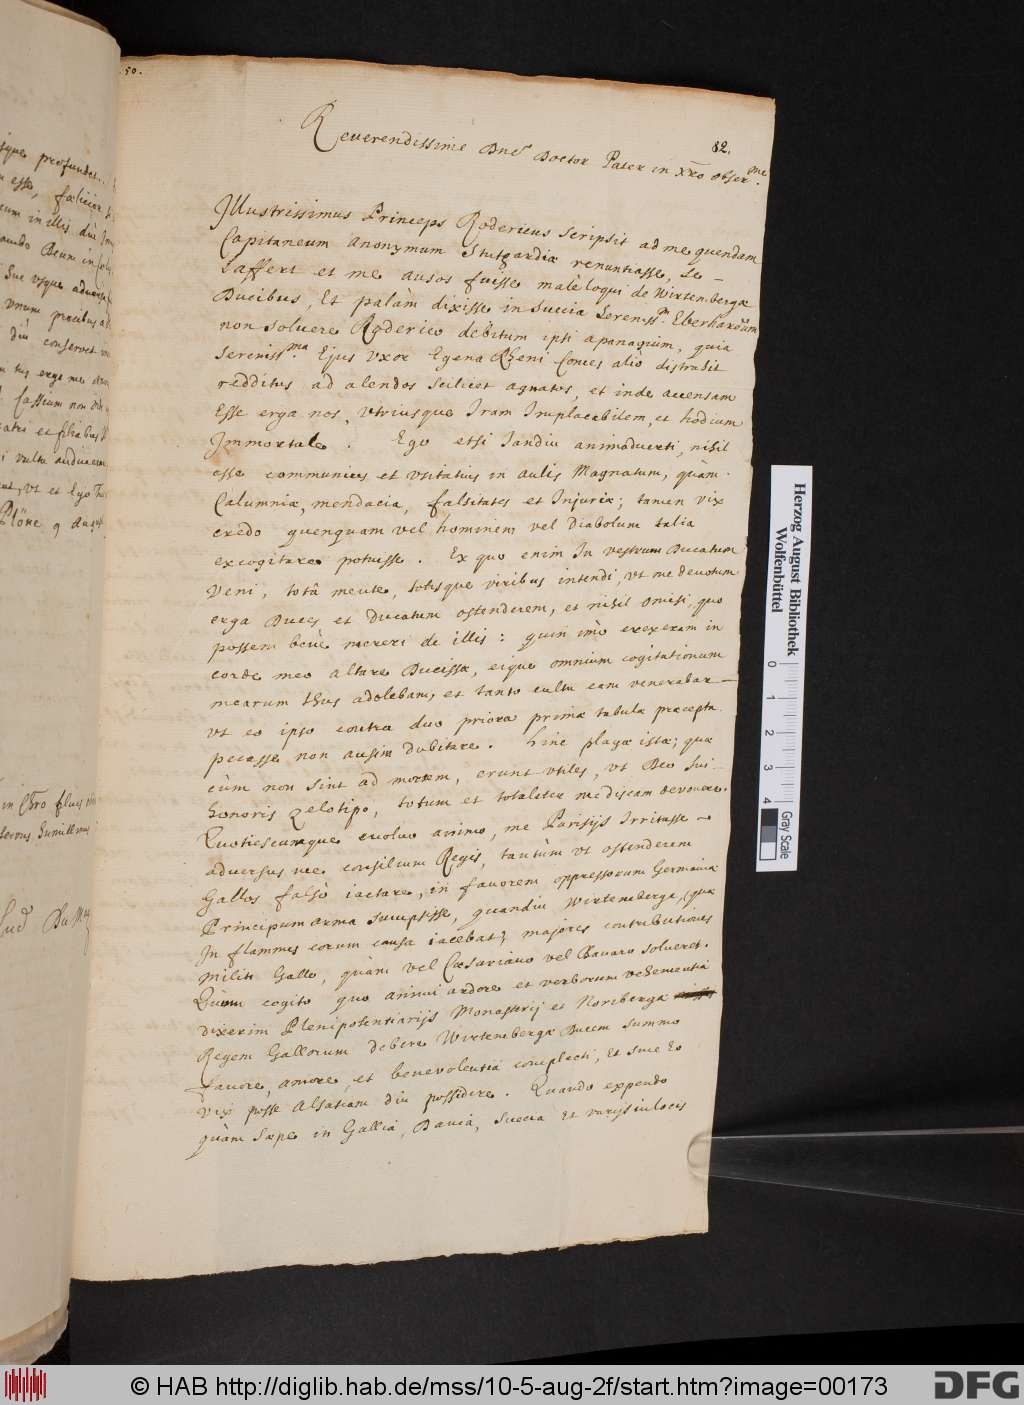 50.
82.
Reverendissime Dne Doctor Pater in Xro obser.me
Illustrissimus Princeps Rodericus scripsit ad me quendam
Capitaneum anonymum Stutgardiæ renuntiasse, Le-
Laffert et me ausos fuisse malè loqui de Wirtembergæ
Ducibus, Et palàm dixisse in Succia Sereniss.m Eberhardum
non soluere Roderico debitum ipsi apanagium, quia
Sereniss.ma Ejus Vxor Egena Rheni Comes aliò distrahit
redditus ad alendos scilicet agnatos, et inde accensam
Esse erga nos, Vtriusque Iram Implacabilem, et hodium
Immortale. Ego etsi Iandiu animaduerti, nihil
esse communius et vsitatius in aulis Magnatum, quàm
Calumniæ, mendacia, falsitates et Injuriæ; tamen vix
credo quenquam vel hominem vel Diabolum talia
excogitare potuisse. Ex quo enim In vestrum Ducatum
Veni, totâ mente, totisque viribus intendi, vt me deuotum
erga Duces et Ducatum ostenderem, et nihil omisi, quo
possem benè mereri de illis: quin imò erexeram in
corde meo altare Ducissæ, eique omnium cogitationum
mearum thus adolebam, et tanto cultu eam venerabar
vt eo ipso contra duo priora primæ tabulæ præcepta
pecasse non ausim dubitare. Hinc plagæ istæ; quæ
cùm non sint ad mortem, erunt vtiles, vt Deo sui
honoris zelotipo, totum et totaliter me discam deuouere.
Quotiescumque euoluo animo, me Parisijs Irritasse
aduersus me consilium Regis, tantùm vt ostenderem
Gallos falsò iactare, in fauorem oppressorum Germaniæ
Principum arma sumpsisse, quandiu Wirtemberga, quæ
In flammis eorum causa iacebat, majores contributiones
militi Gallo, quàm vel Cæsariano vel Bauaro solueret.
Quum cogito quo animi ardore et verborum vehementiâ
dixerim Plenipotentiarijs Monasterij et Norberga
Regem Gallorum debere Wirtembergæ Ducem summo
fauore, amore, et beneuolentiâ complecti, et sine Eo
vix posse Alsatiam diu possidere. Quando expendo
quàm sæpe in Gallia, Dania, Suecia et varijs in locis
Herzog August Bibliothek
Wolfenbüttel
0 1 2 3 4
Gray Scale
© HAB http://diglib.hab.de/mss/10-5-aug-2f/start.htm?image=00173
DFG